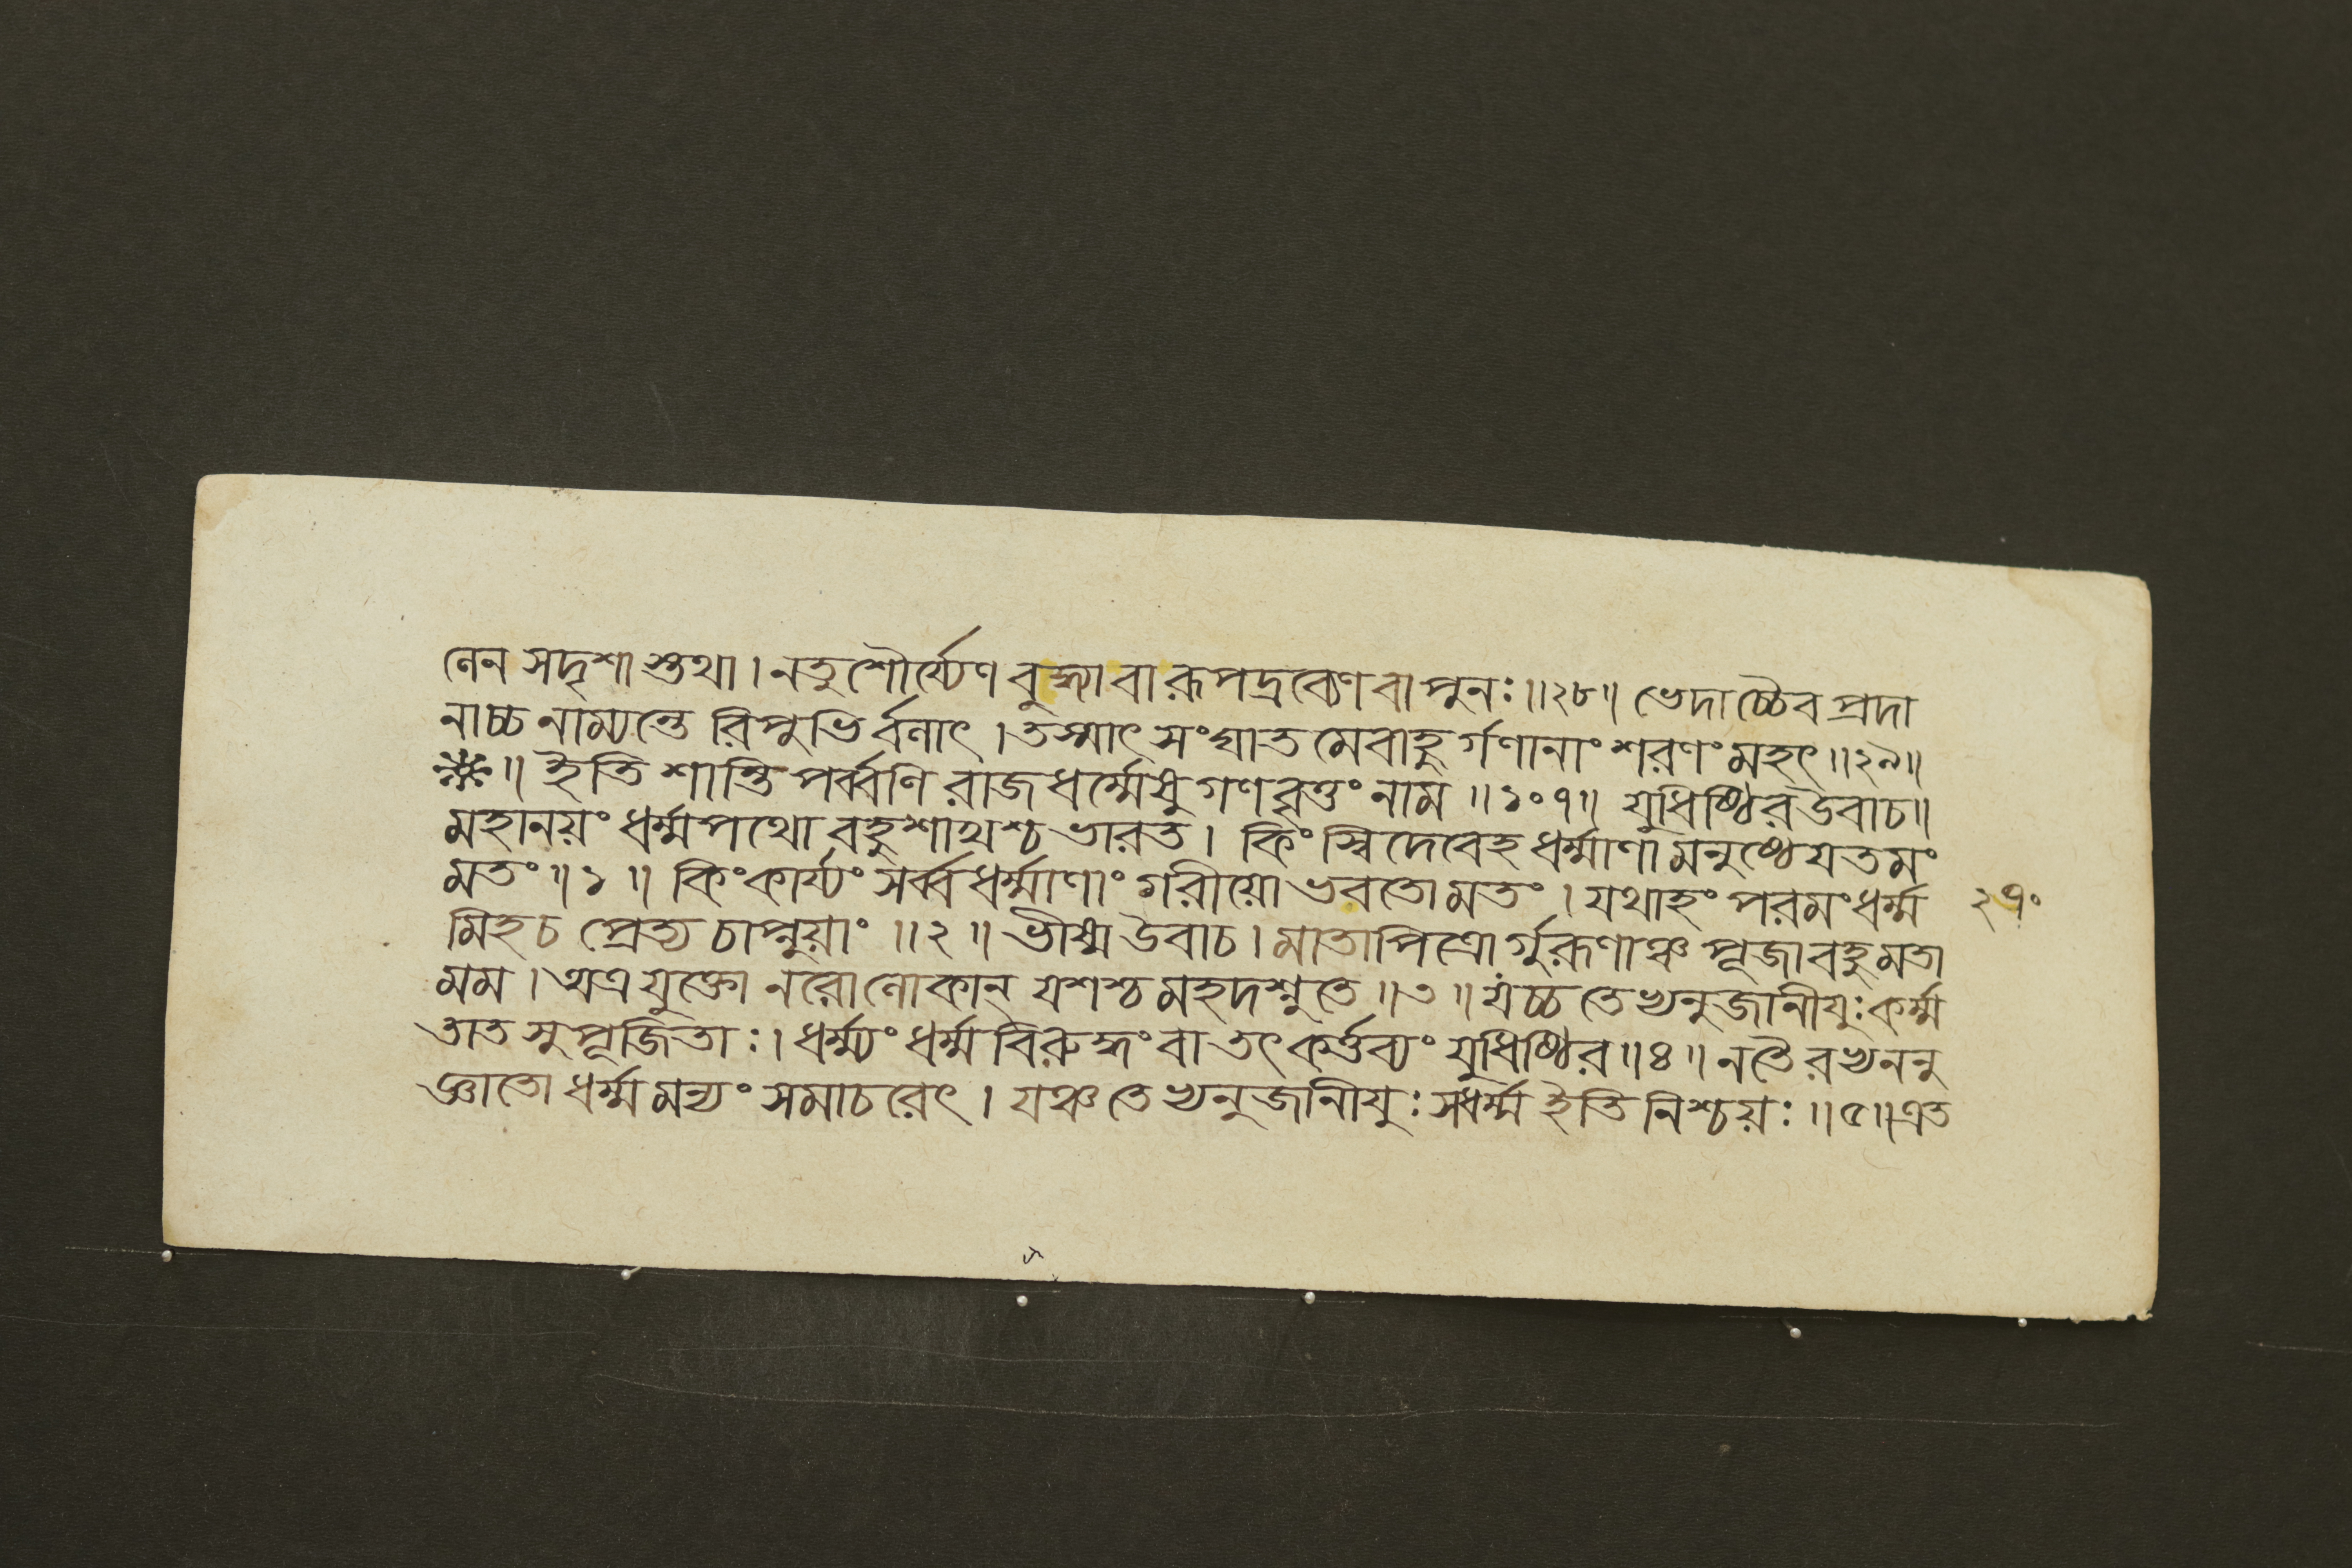 লেন সদৃশাস্তথা । নতু শৌর্য্যেণ বুদ্ধ্যা বা রূপদ্রব্যেণ বা পুনঃ ॥ ২৮ ॥ ভেদাচ্চৈব প্রদা
নাচ্চ নাম্যন্তে রিপুভির্বলাৎ । তস্মাৎ সংঘাতমেবাহুর্গণানাং শরণং মহৎ ॥ ২৯ ॥
॥ ইতি শান্তিপর্ব্বণি রাজধর্ম্মেষু গণবৃত্তং নাম ॥ ১০৭ ॥ যুধিষ্ঠির উবাচ ॥
মহানয়ং ধর্ম্মপথো বহুশাখশ্চ ভারত । কিংস্বিদেবেহ ধর্ম্মাণামনুষ্ঠেযতমং
মতং ॥ ১ ॥ কিং কার্য্যং সর্ব্বধর্ম্মাণাং গরীয়ো ভবতো মতং । যথাহং পরমং ধর্ম্ম
২৭০
মিহ চ প্রেত্য চাপ্নুয়াং ॥ ২ ॥ ভীষ্ম উবাচ । মাতাপিত্রোর্গুরূণাঞ্চ পূজা বহুমতা
মম । অত্র যুক্তো নরো লোকান্ যশশ্চ মহদশ্নুতে ॥ ৩ ॥ যংচ্চ তেভ্যনুজানীযুঃ কর্ম্ম
তাত সুপূজিতাঃ । ধর্ম্ম্যং ধর্ম্মবিরুদ্ধং বা তৎ কর্ত্তব্যং যুধিষ্ঠির ॥ ৪ ॥ ন তৈরভ্যননু
জ্ঞাতো ধর্ম্মমন্যং সমাচরেৎ । যঞ্চ তেভ্যনুজানীযুঃ স ধর্ম্ম ইতি নিশ্চয়ঃ ॥ ৫ ॥ এত